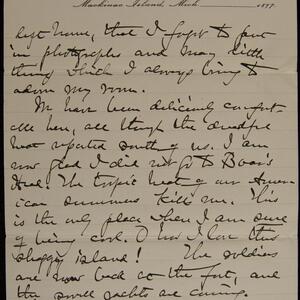 Mackinac Island, Mich. 1897
left home, that I forgot to put
in photographs and many little
things which I always bring to
adorn my room.
We have been deliciously comfort-
able here, all though the dreadful
heat reported south of us. I am
now glad I did not go to Boar's
Head. The tropic heat of our Amer-
ican summers kills me. This
is the only place where I am sure
of being cool. O how I love this
shaggy island! The soldiers
are now back at the fort, and
the swell yachts are coming.